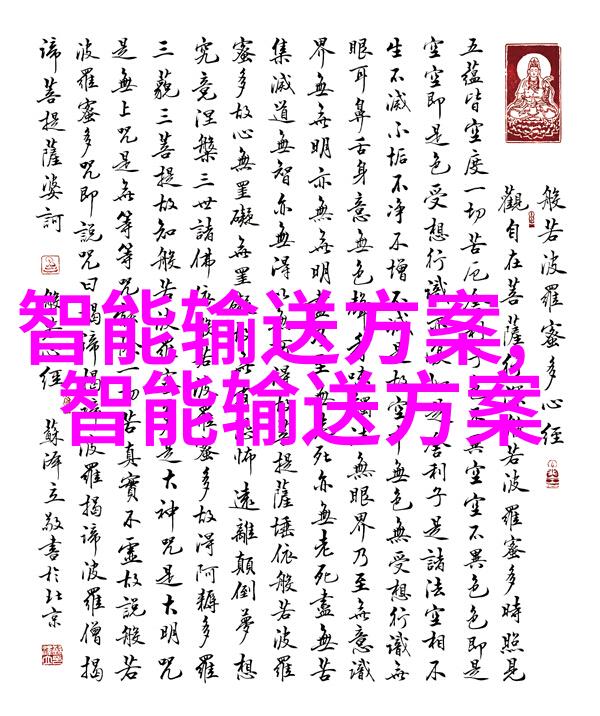 般若波羅蜜多心經
觀自在菩薩行般若波羅蜜多時照見
五蘊皆空度一切苦厄空空不異色色即是
空空即是色受想行識是舍利子是諸法空相不
生不滅不垢不净不增不空無色無受想行識無
眼耳鼻舌身意無色聲無眼界乃至無意識
界無無明亦無無明盡至無老死亦無老死盡無苦
集滅道無智亦無得提薩埵依般若波羅
蜜多故心無罣礙無罣礙恐怖遠離顛倒夢想
究竟涅槃三世諸佛依若波羅蜜多故得阿耨多羅
三藐三菩提故知般若波是大神咒是大明咒
是無上咒是無等等咒一切苦真實不虛故說般若
波羅蜜多咒即說咒曰揭諦揭波羅揭諦波羅僧揭
諦菩提薩婆訶
心經
敬書於北京
智能输送方案,
智能输送方案